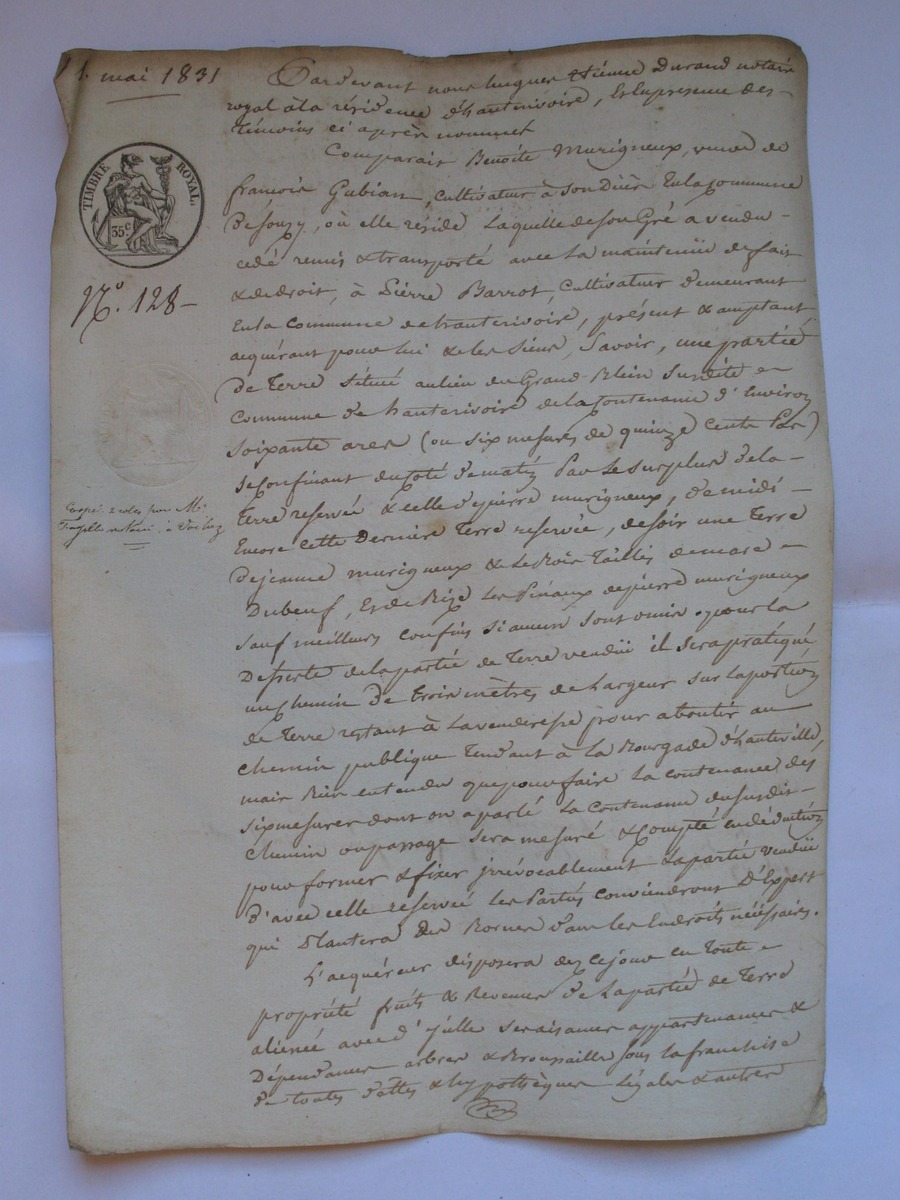 1. mai 1831
TIMBRE ROYAL.
35 c
N.o 128 -
Pardevant nous hugues Etienne Durand notaire
royal à la résidence d'hauterivoire, Et en presence des
témoins ci après nommet
Comparait Benoîte Murigneux, veuve de
francois Gubian, Cultivateur à Son Décès En la Commune
De Souzy, où elle réside Laquelle de Son Gré a vendu
cedé remis & transporté avec La maintenüe de fait
& de droit, à Pièrre Barrot, Cultivateur demeurant
En la Commune de hauterivoire, présent & acceptant
acquérant pour lui & les Siens, Savoir, une partie
De Terre Située au lieu du Grand Susdite
Commune de hauterivoire de la Contenance d'Environ
Soixante ares (ou six mesures de quinze Cents Pas)
Se Confinant du Coté de matin Par Le Surplus de la
Terre reservée & celle de pierre murigneux, de midi
Encore cette Dernière Terre reservée, de soir une Terre
De jeanne murigneux & Le Bois Taillis de
Dubeuf, Et de Bize Les de pierre murigneux
Sauf meilleurs confins Si aucun Sont omis, pour la
Desserte de la partie de Terre vendüe il Sera pratiqué
un Chemin De trois mètres de Largeur Sur la portion
de Terre restant à La venderesse pour aboutir au
Chemin publique Tendant à La Bourgade d'hauteville,
mais Bien entendu que pour faire La contenance des
Six mesures dont on a parlé La Contenance du Susdit
Chemin ou passage Sera mesuré & Compté en déduction
pour former & fixer irrévocablement La partie vendüe
D'avec celle reservée Les Parties Conviendront D'Expert
qui Plantera Des Bornes Dans Les Endroits nécéssaires.
L'acquéreur disposera dez Ce jour en Toute
propriété fruits & Revenus De La partie de Terre
alienée avec d'jcelle Ses aisances appartenances &
Dépendances arbres & Broussailles Sous La franchise
De toutes Dettes & hypothèques Légales & autres